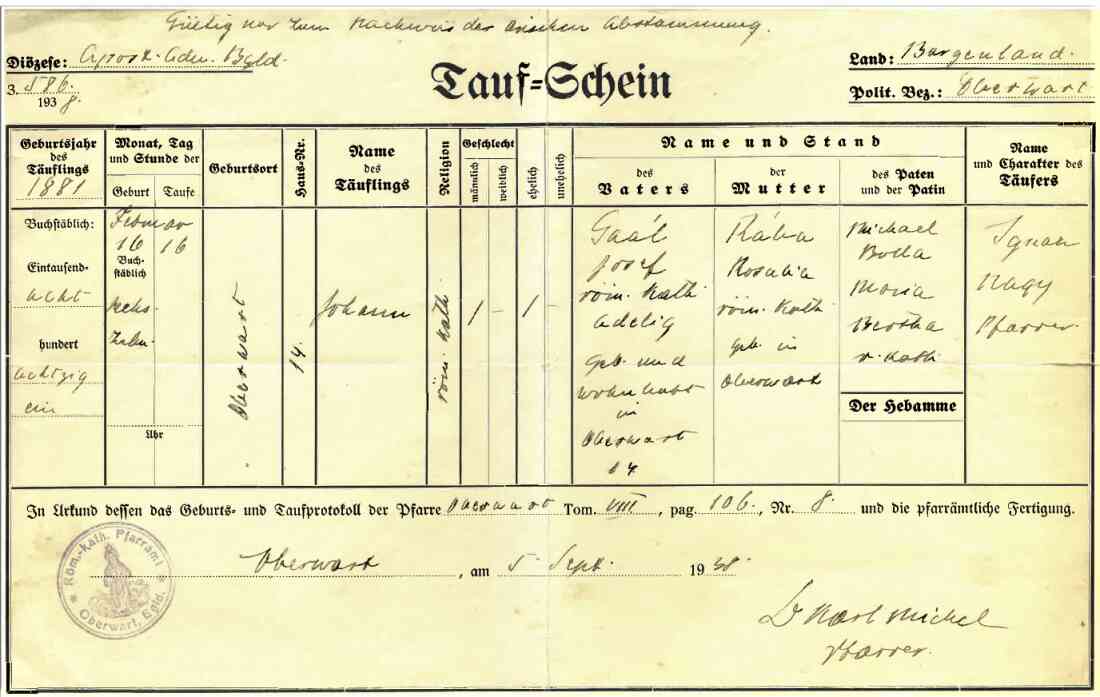 Gültig nur zum Nachweis der arischen Abstammung.
Diözese: Apost. Adm. Bgld.
Land: Burgenland.
3. 586.
1938.
Tauf-Schein
Polit. Bez.: Oberwart
Geburtsjahr des Täuflings 1881
Monat, Tag und Stunde der
Geburt Taufe
Geburtsort
Haus-Nr.
Name des Täuflings
Religion
Geschlecht
männlich weiblich
ehelich
unehelich
Name und Stand
des Vaters
der Mutter
des Paten und der Patin
Name und Charakter des Täufers
Buchstäblich:
Eintausend-
acht
hundert
achtzig
ein
Februar
16 16
Buch-
stäblich
sechs-
zehn.
Uhr
Oberwart
14.
Johann
röm. kath
1 – 1 –
Gaál
Josef
röm. kath
adelig
geb. und
wohnhaft
in
Oberwart
14
Rába
Rosalia
röm. kath
geb. in
Oberwart
Michael
Bolla
Maria
Bertha
r. kath
Der Hebamme
Ignaz
Nagy
Pfarrer.
In Urkund dessen das Geburts- und Taufprotokoll der Pfarre Oberwart Tom. VIII, pag. 106., Nr. 8 und die pfarrämtliche Fertigung.
Röm.-kath. Pfarramt
Oberwart, Bgld.
Oberwart, am 5 Sept. 1938.
Dr Karl Michel
Pfarrer.